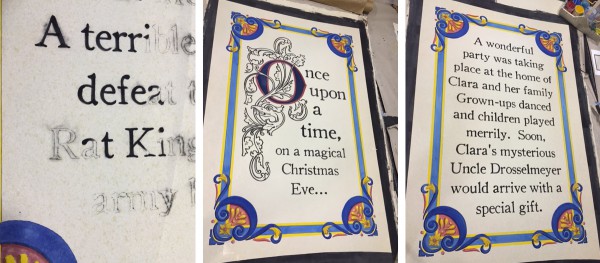 A terrible
defeat
Rat King
army
Once
upon
a
time,
on a magical
Christmas
Eve...
A wonderful
party was taking
place at the home of
Clara and her family
Grown-ups danced
and children played
merrily. Soon,
Clara's mysterious
Uncle Drosselmeyer
would arrive with a
special gift.